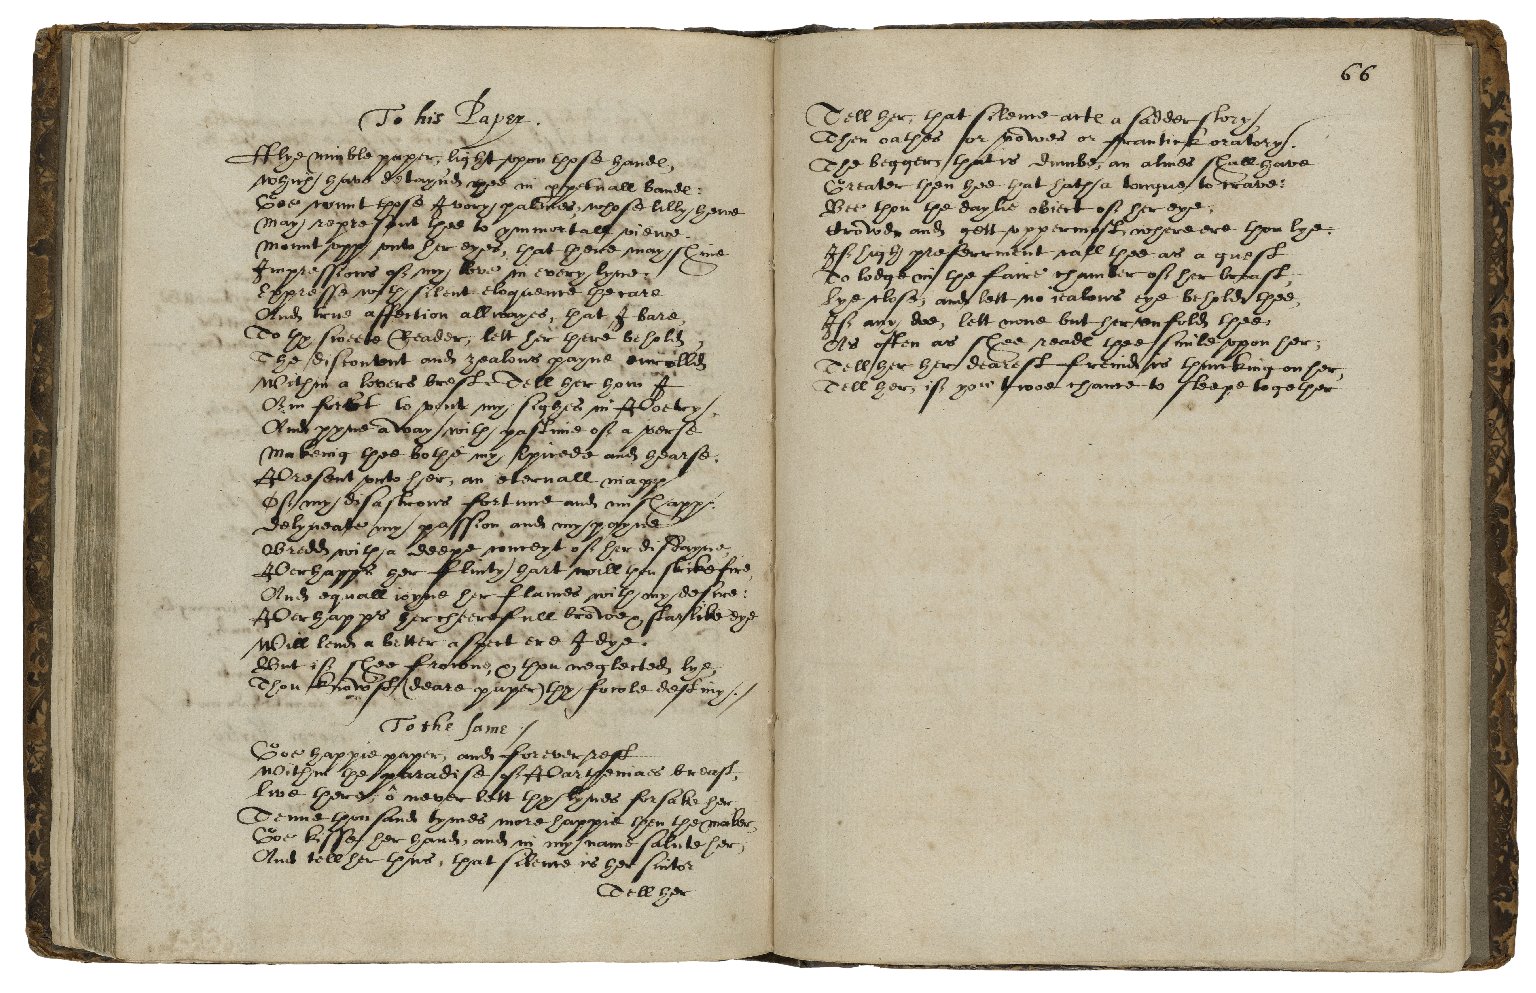 To his Paper.
Fflye nimble paper, light vpon those handes,
Which have detaynd mee in ppetuall bandes:
Goe wount those Ivory palmes, whose lilly hewe
May represent thee to ymmortall viewe.
Mount vpp vnto her eyes, that thence may shine
Impressions of my love in every lyne.
Expresse with silent eloquence the care
And true affection allwayes, that I bare,
To thy sweete Reader, lett her there behold,
The discontent and zealous payne enrolld
Within a lovers brest. Tell her how I
Am forc't to vent my sighes in Poetry,
And pyne away with pastime of a verse
Makeing thee bothe my spirede and hearse.
Present vnto her, an eternall mapp
Of my disastrous fortune and mishapp.
Delyneate my passion and my payne
Bredd with a deepe conceyt of her disdayne,
Perhapps her flinty hart will then strike fire,
And equall ioyne her flames with my desire:
Perhapps her cheerefull browe, & starlike eye
Will lend a better aspect ere I dye.
But if shee frowne, & thou neglected lye,
Thou knowst (deare paper) thy fowle destiny.//
To the same /
Goe happie paper, and forever rest
Within the paradise of Partheniaes breast,
Live there, ô never lett thy lynes forsake her
Tenne thousand tymes more happie then the maker,
Goe kisse her hand, and in my name salute her,
And tell her thus, that silence is her sutor
Tell her
66
Tell her, that silence actes a sadder story,
Then oathes or vowes or frantick oratory.
The begger, that is dumbe, an almes shall have
Greater then hee that hath a tongue to crave:
Bee thou the daylie obiect of her eye,
Crowde and gett vppermost, where ere thou lye.
If high preferrment call thee as a guest
To lodge in the faire chamber of her breast,
Lye close, and lett no iealous eye behold thee,
If any doe, lett none but her vnfold thee.
As often as shee reades thee smile vpon her;
Tell her her dearest freind is thincking on her,
Tell her, if you twoe chance to sleepe together